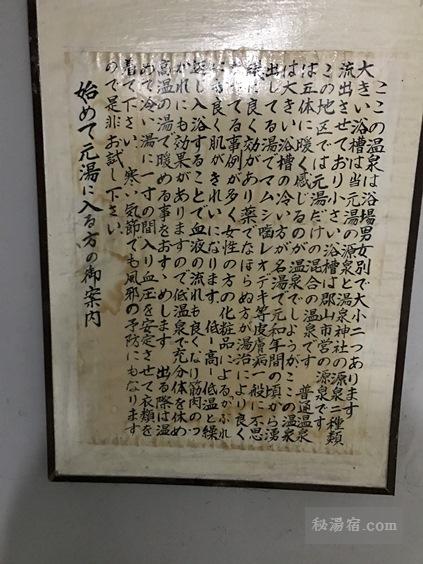 ここの温泉は浴場男女別で大小二つあります
大きい浴槽は当元湯の源泉と湯泉神社の源泉二種類
流出させており小さい浴槽は郡山市営の源泉です
この地区では元湯だけの混合の温泉です 普通温泉
は五体に暖く感じるのが温泉でしょうがここの温泉
は大きい浴槽の冷い方が名湯で元和年間の頃から湧
出して居る湯でマムシ噛レオデキ等皮膚病一般に不思
議に良く効があり薬でなほらぬ方が湯治により良く
なってる事例が多く女性の方の化粧品によるかぶれ
にも良く肌がきれいになります 低ー高ー低温と繰
返し入浴することで血液の流れも良くなり筋肉のつ
かれにも効果がありますので低温泉で充分体を休め
高温の湯で暖める事をおすゝめします 出る際は温
めて冷い湯に一寸の間入り血圧を安定させて衣類を
着て下さい、寒い気節でも風邪の予防にもなります
ので是非お試し下さい、
始めて元湯に入る方の御案内
秘湯宿.com